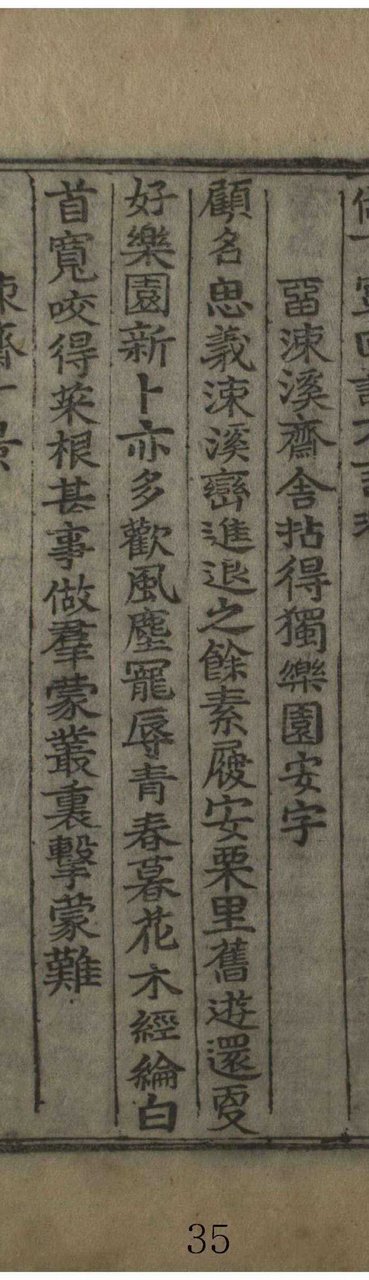 畱涑溪齋舍拈得獨樂園安字
顧名思義涑溪巒進退之餘素履安栗里舊遊還更
好樂園新卜亦多歡風塵寵辱青春暮花木經綸白
首寬咬得菜根甚事做羣蒙叢裏擊蒙難
35